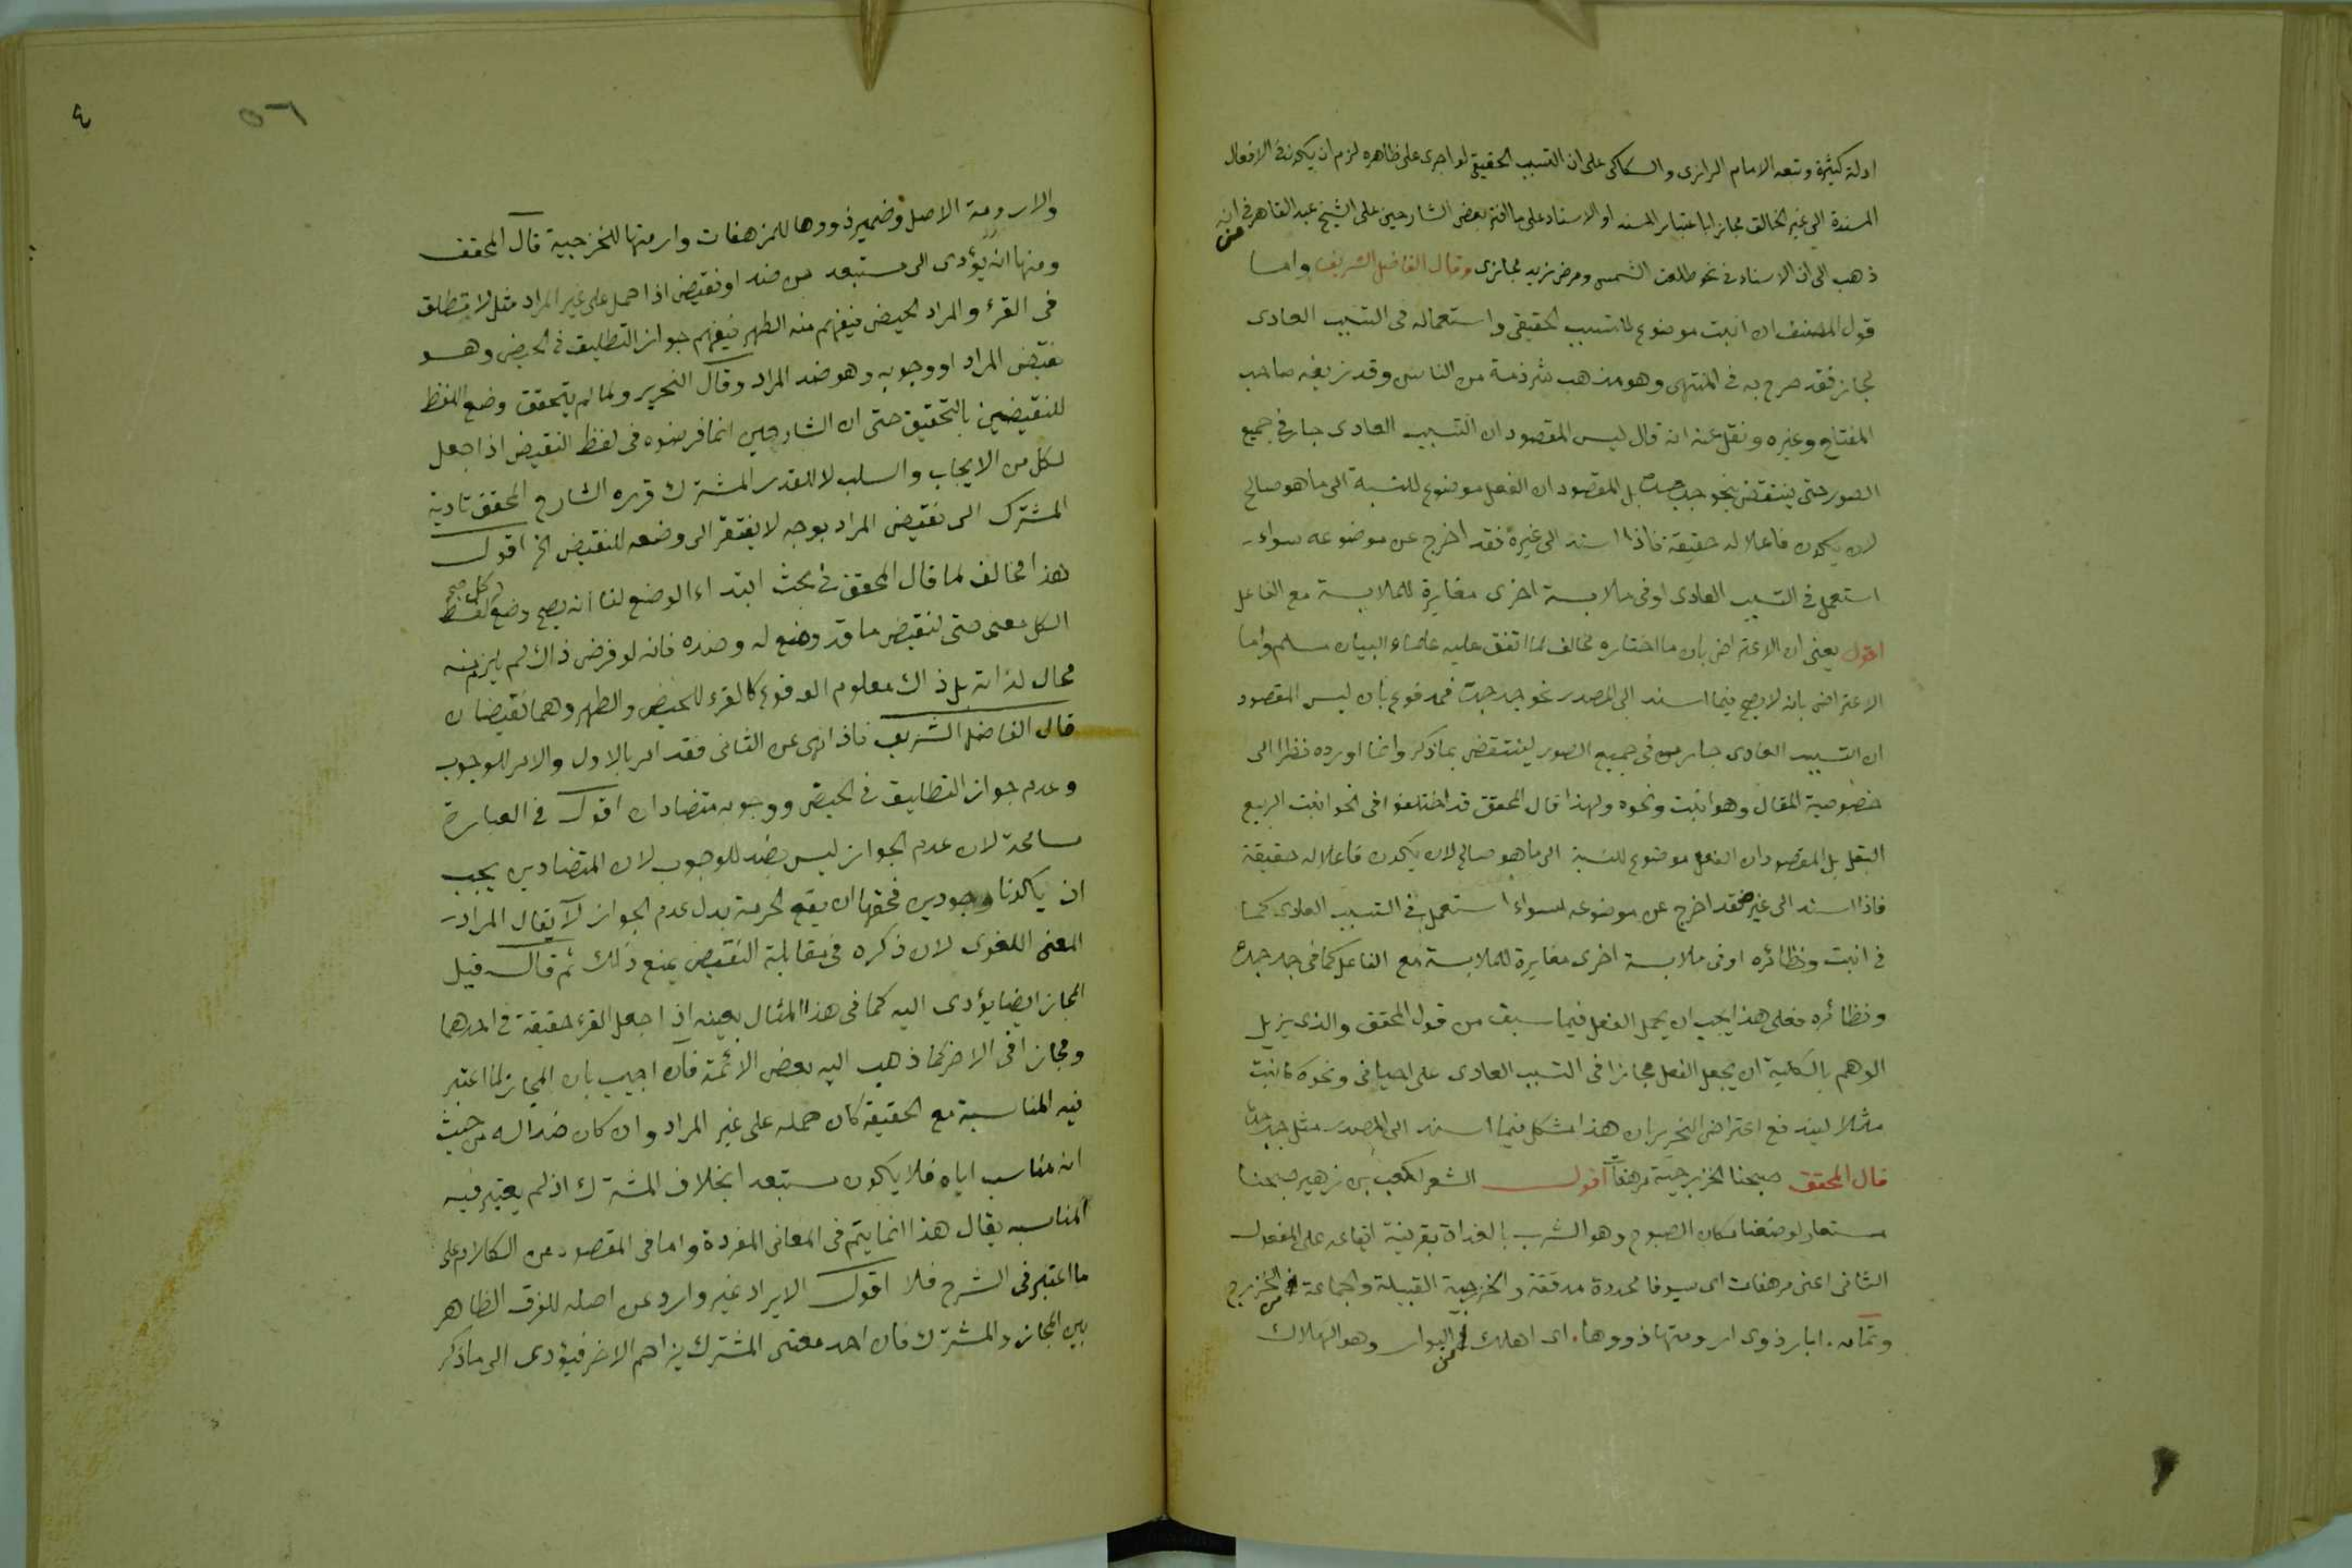 ادلة كثيرة وتبعه الامام الرازى والسكاكى على ان التسبب الحقيقى لو اجرى على ظاهره لزم ان يكون فى الافعال
المسندة الى غير الخالق مجازا باعتبار المسند او الاسناد على ما افتر بعض الشارحين على الشيخ عبد القاهر فى انه
ذهب الى ان الاسناد فى نحو طلعت الشمس ومرض زيد مجازى وقال الفاضل الشريف واما
قول المصنف ان انبت موضوع للتسبب الحقيقى واستعماله فى التسبب العادى
مجاز فقد صرح به فى المنتهى وهو مذهب شرذمة من الناس وقد زيفه صاحب
المفتاح وغيره ونقل عنه انه قال ليس المقصود ان التسبب العادى جار فى جميع
الصور حتى ينتقض بنحو جد جده بل المقصود ان الفعل موضوع للنسبة الى ما هو صالح
لان يكون فاعلا له حقيقة فاذا اسند الى غيره فقد اخرج عن موضوعه سواء
استعمل فى التسبب العادى او فى ملابسة اخرى مغايرة للملابسة مع الفاعل
اقول يعنى ان الاعتراض بان ما اختاره مخالف لما اتفق عليه علماء البيان مسلم واما
الاعتراض بانه لا يصح فيما اسند الى المصدر نحو جد جده فمدفوع بان ليس المقصود
ان التسبب العادى جار فى جميع الصور لينتقض بما ذكر وانما اورده نظرا الى
خصوصية المقال وهو انبت ونحوه ولهذا قال المحقق قد اختلفوا فى نحو انبت الربيع
البقل بل المقصود ان الفعل موضوع للنسبة الى ما هو صالح لان يكون فاعلا له حقيقة
فاذا اسند الى غيره فقد اخرج عن موضوعه سواء استعمل فى التسبب العادى كما
فى انبت ونظائره او فى ملابسة اخرى مغايرة للملابسة مع الفاعل كما فى جد جده
ونظائره فعلى هذا يجب ان يحمل الفعل فيما سبق من قول المحقق والذى يزيل
الوهم بالكلية ان يجعل الفعل مجازا فى التسبب العادى على احيانى ونحوه كانبت
مثلا ليندفع اعتراض النحرير ان هذا مشكل فيما اسند الى المصدر مثل جد جده
قال المحقق صبحنا الخزرجية مرهفات اقول الشعر لكعب بن زهير صبحنا
مستعار لوضعنا مكان الصبوح وهو الشرب بالغداة بقرينة ايقاعه على المفعول
الثانى اعنى مرهفات اى سيوفا محددة مدققة والخزرجية القبيلة والجماعة من الخزرج
وتمامه . ابار ذوى ارومتها ذووها . اى اهلك من البوار وهو الهلاك
٤
والارومة الاصل وضمير ذووها للمرهفات وارومتها للخزرجية قال المحقق
ومنها انه يؤدى الى مستبعد من ضد او نقيض اذا حمل على غير المراد مثل لا تطلق
فى القرء والمراد الحيض فيفهم منه الطهر فيفهم جواز التطليق فى الحيض وهو
نقيض المراد او وجوبه وهو ضد المراد وقال النحرير ولما لم يتحقق وضع اللفظ
للنقيضين بالتحقيق حتى ان الشارحين انما فرضوه فى لفظ النقيض اذا جعل
لكل من الايجاب والسلب لا للقدر المشترك قرره الشارح المحقق تادية
المشترك الى نقيض المراد بوجه لا يفتقر الى وضعه للنقيض الخ اقول
هذا مخالف لما قال المحقق فى بحث ابتداء الوضع لنا انه يصح وضع كل لفظ
لكل معنى حتى لنقيض ما قد وضع له وضده فانه لو فرض ذاك لم يلزم منه
محال لذاته بل ذاك معلوم الوقوع كالقرء للحيض والطهر وهما نقيضان
قال الفاضل الشريف فاذا نهى عن الثانى فقد امر بالاول والامر للوجوب
وعدم جواز التطليق فى الحيض ووجوبه متضادان اقول فى العبارة
مسامحة لان عدم الجواز ليس بضد للوجوب لان المتضادين يجب
ان يكونا وجوديين فحقها ان يقع الحرمة بدل عدم الجواز لا يقال المراد
المعنى اللغوى لان ذكره فى مقابلة النقيض يمنع ذلك ثم قال قيل
المجاز ايضا يؤدى اليه كما فى هذا المثال بعينه اذا جعل القرء حقيقة فى احدهما
ومجازا فى الاخر كما ذهب اليه بعض الائمة فان اجيب بان المجاز لما اعتبر
فيه المناسبة مع الحقيقة كان حمله على غير المراد وان كان ضدا له من حيث
انه مناسب اياه فلا يكون مستبعدا بخلاف المشترك اذ لم يعتبر فيه
المناسبة يقال هذا انما يتم فى المعانى المفردة واما فى المقصود من الكلام على
ما اعتبر فى الشرح فلا اقول الايراد غير وارد عن اصله للفرق الظاهر
بين المجاز والمشترك فان احد معنى المشترك يزاحم الاخر فيؤدى الى ما ذكر